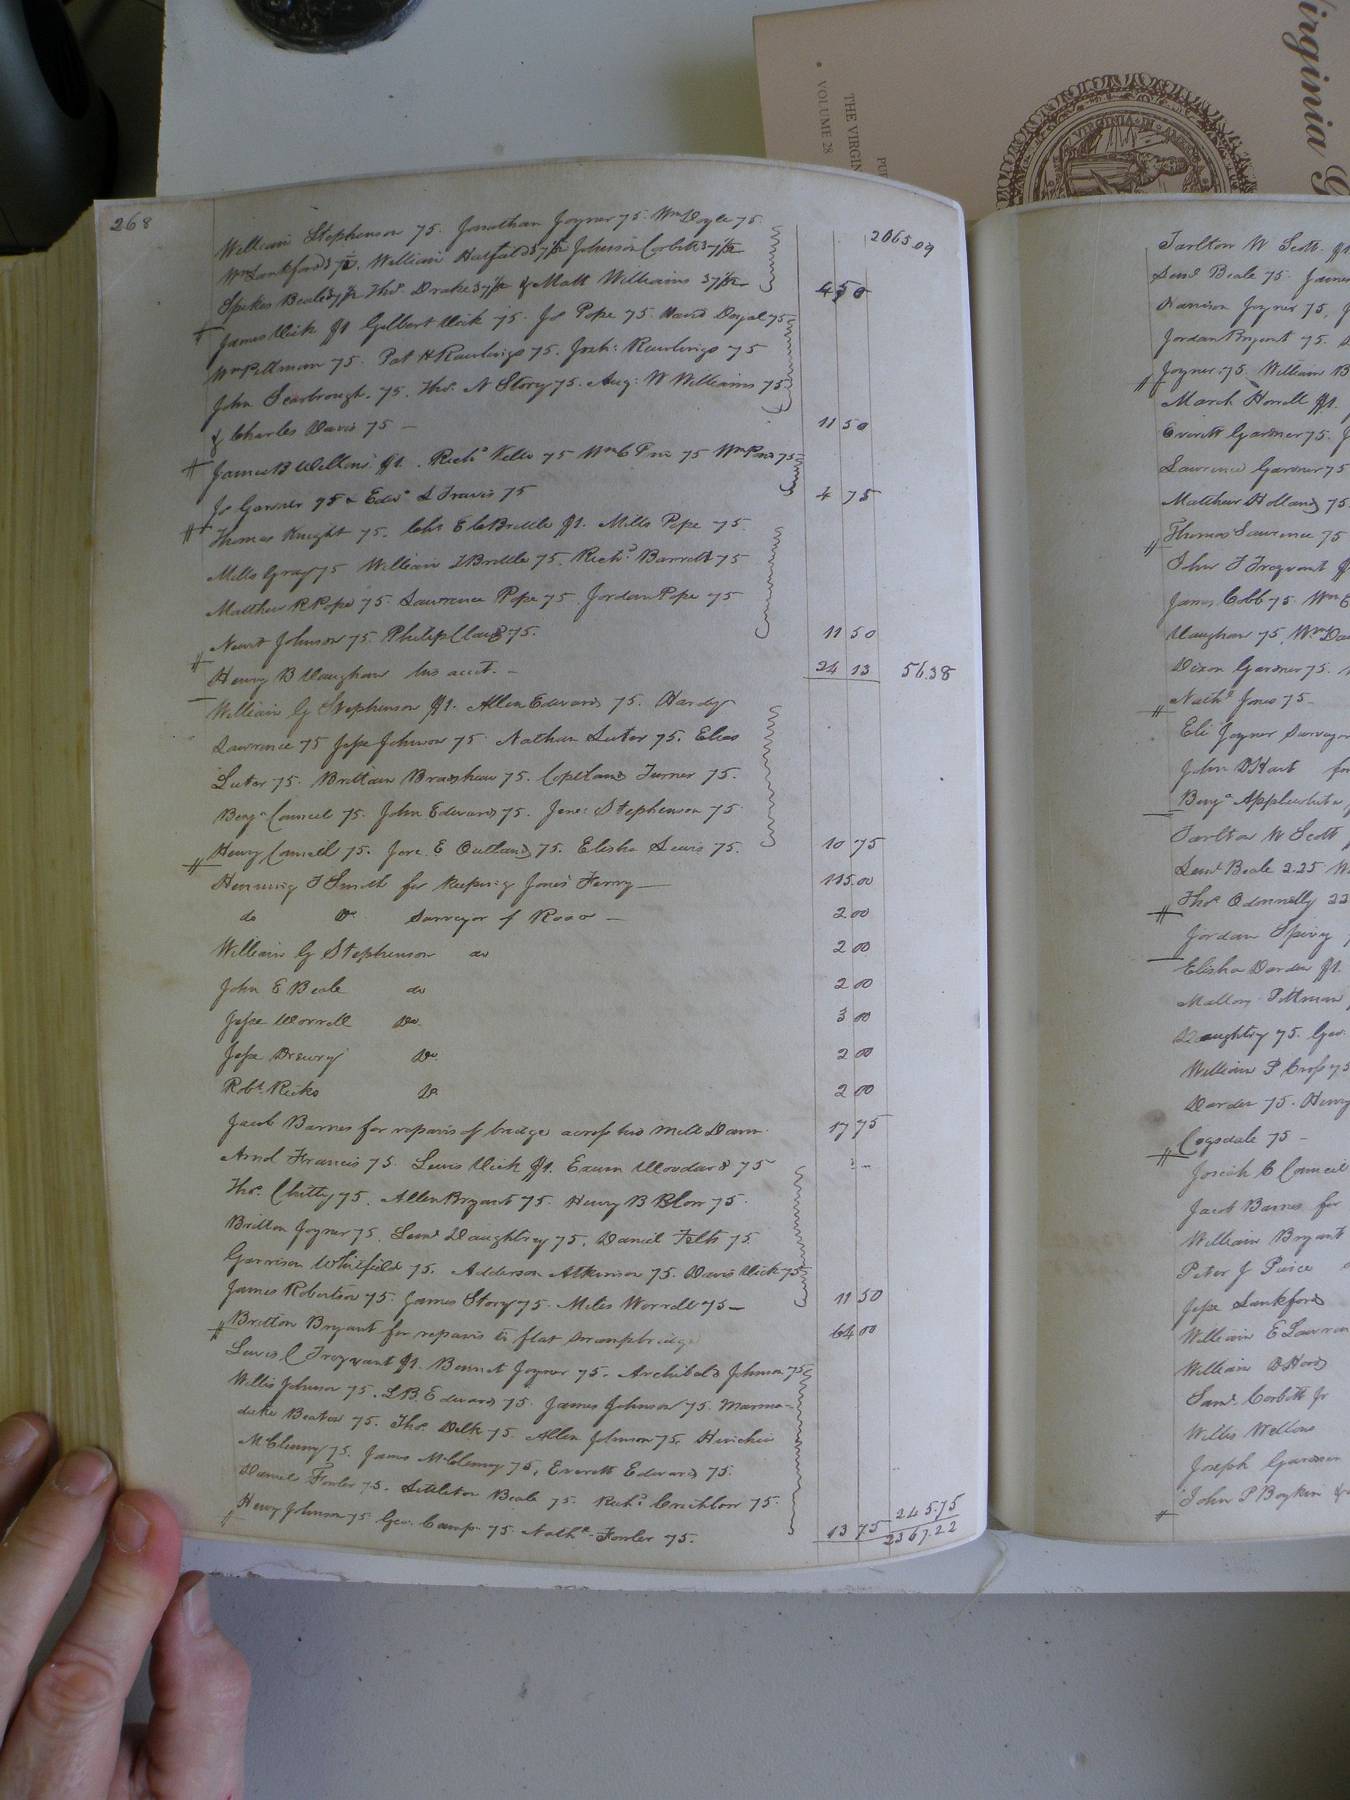 Virginia G
THE VIRGIN
VOLUME 28
VIRGINIA
268
2065.09
William Stephenson 75. Jonathan Joyner 75. Wm Doyle 75
Wm Lankford 37½. William Hatfield 37½ Johnson Corbitt 37½
Spikes Beale 37½ Thos. Drake 37½ & Matt Williams 37½ 4 50
James Vick $1. Gilbert Vick 75. Js Pope 75 David Doyal 75
Wm Pittman 75. Pat H Rawlings 75. Rawlings 75
John Scarbrough. 75. Thos. N Story 75. Aug: W Williams 75
& Charles Davis 75 — 11 50
James B Wilkins $1. Richd 75 Wm 75 Wm 75
Js Garner 75 & Edwd 75 4 75
Thomas Knight 75. Brittle $1. Mills Pope 75
Mills Gray 75 William Brittle 75. Richd. Barrett 75
Matthew R Pope 75. Lawrence Pope 75. Jordan Pope 75
Newit Johnson 75. Philip 75. 11 50
Henry B Vaughan his acct. — 24 13 56.38
William G Stephenson $1. Allen Edwards 75. Hardy
Lawrence 75 Jesse Johnson 75. Nathan Luter 75. Elias
Luter 75. Brittain Bradshaw 75. Copeland Turner 75.
Benja Council 75. John Edwards 75. Stephenson 75
Henry Council 75. Jere. E Outland 75. Elisha Lewis 75. 10 75
Henning T Smith for keeping Jones' Ferry — 115.00
do Do Surveyor of Road — 2 00
William G Stephenson do 2 00
John E Beale do 2 00
Jesse Worrell Do. 3 00
Jesse Drewry Do 2 00
Robt. Ricks Do 2 00
Jacob Barnes for repairs of bridge across his Mill Dam. 17 75
Arnd Francis 75. Lewis Vick $1. Exum Woodard 75
Thos. Chitty 75. Allen Bryant 75. Henry B Blow 75.
Britton Joyner 75. Saml Daughtrey 75. Daniel Felts 75.
Garrison Whitfield 75. Adderson Atkinson 75. Davis Vick 75
James Robertson 75. James Story 75. Miles Worrell 75 — 11 50
Britton Bryant for repairs to flat swamp bridge 64 00
Lewis C Trezvant $1. Bennet Joyner 75. Archibald Johnson 75
Willis Johnson 75. L.B. Edwards 75. James Johnson 75. Marma-
duke Beaton 75. Thos. Delk 75. Allen Johnson 75.
McClenny 75. James McClenny 75, Everett Edwards 75.
Daniel Fowler 75. Littleton Beale 75. Richd. Crichlow 75.
Henry Johnson 75. Geo. Camp. 75. Nathl. Fowler 75. 13 75 245.75
2367.22
Tarlton W Scott. $1
Saml Beale 75. James
Harrison Joyner 75.
Jordan Bryant 75.
Joyner. 75. William B
March Howell $1.
Everett Gardner 75.
Lawrence Gardner 75
Matthew Holland 75.
Thomas Lawrence 75
John T Trezvant $
James Cobb 75. Wm
Vaughan 75. Wm Da
Dixon Gardner 75.
Nathl Jones 75 —
Eli Joyner Surveyor
John D Hart for
Benja Applewhite
Tarlton W Scott
Saml Beale 2.25
Thos. Odonnelly 22
Jordan Spivy
Elisha Darden $1.
Mallory Pittman
Daughtry 75. Geo.
William P 75
Darden 75. Henry
Cogsdale 75 —
Josiah C Council
Jacob Barnes for
William Bryant
Peter J Peirce
Jesse Lankford
William E Lawren
William B Hood
Saml. Corbitt Jr
Willis Wellons
Joseph Gardner
John P Boykin &